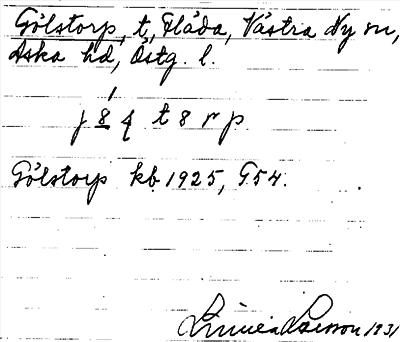 Gölstorp, t., Fläda, Västra Ny sn,
Aska hd, Östg. l.
Gölstorp kb 1925, G54.
Linnea Larsson 1931